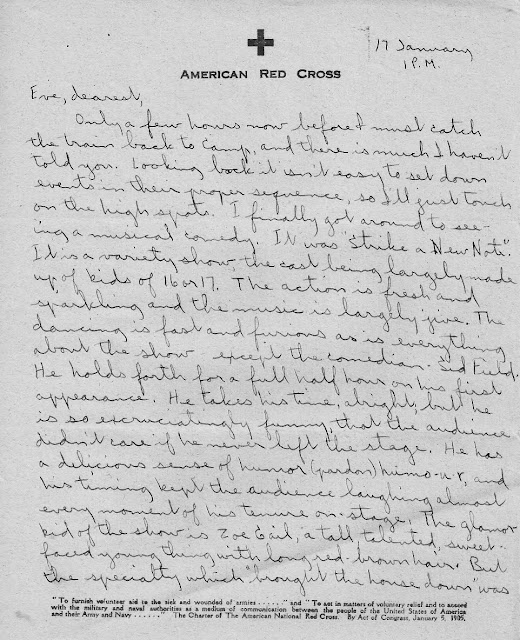 17 January
1 P.M.
AMERICAN RED CROSS
Eve, dearest,
Only a few hours now before I must catch
the train back to Camp, and there is much I haven't
told you. Looking back it isn't easy to set down
events in their proper sequence, so I'll just touch
on the high spots. I finally got around to see-
ing a musical comedy. It was "Strike a New Note".
It is a variety show, the cast being largely made
up of kids of 16 or 17. The action is fresh and
sparkling and the music is largely jive. The
dancing is fast and furious as is everything
about the show except the comedian - Sid Field.
He holds forth for a full half hour on his first
appearance. He takes his time, alright, but he
is so excruciatingly funny, that the audience
didn't care if he never left the stage. He has
a delicious sense of humor (pardon) humo-u-r, and
his timing kept the audience laughing almost
every moment of his tenure on-stage. The glamor
kid of the show is Zoe Gail, a tall talented, sweet-
faced young thing with long red-brown hair. But
the specialty which "brought the house down" was
"To furnish volunteer aid to the sick and wounded of armies . . . . . ." and "To act in matters of voluntary relief and to accord
with the military and naval authorities as a medium of communication between the people of the United States of America
and their Army and Navy . . . . . ." The Charter of The American National Red Cross. By Act of Congress, January 5, 1905.